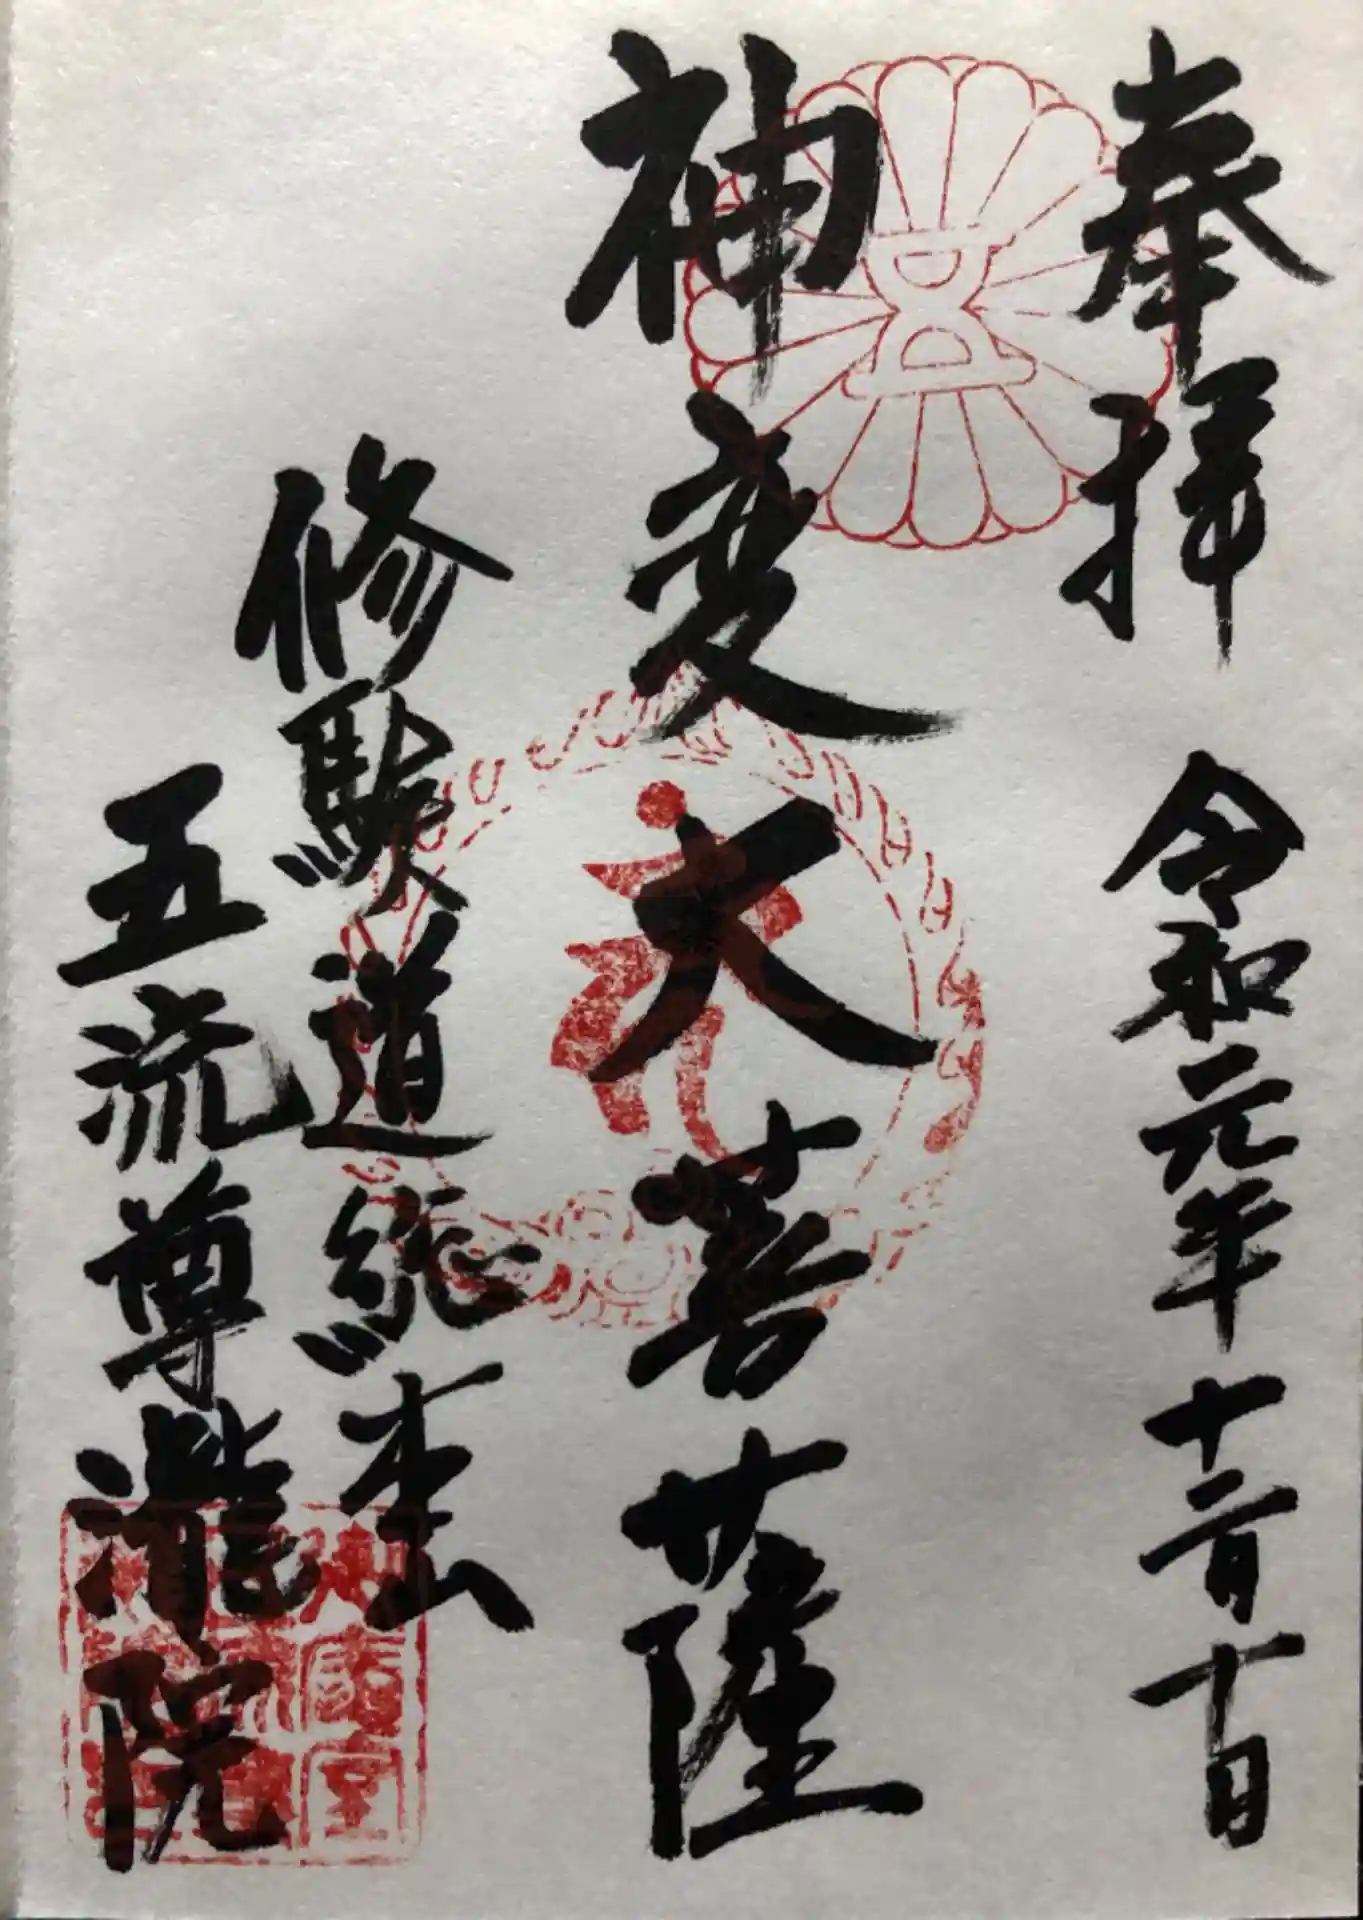 奉拝 令和元年十二月十日
神変大菩薩
修験道総本山
五流尊瀧院